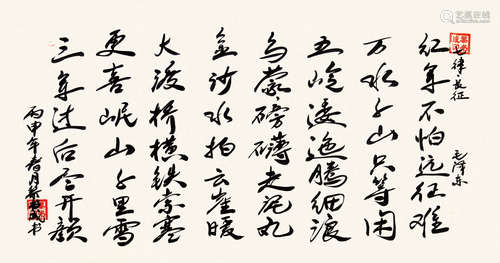 七律长征
毛泽东
红军不怕远征难
万水千山只等闲
五岭逶迤腾细浪
乌蒙磅礴走泥丸
金沙水拍云崖暖
大渡桥横铁索寒
更喜岷山千里雪
三军过后尽开颜
丙申年春月 书
艺狐在线